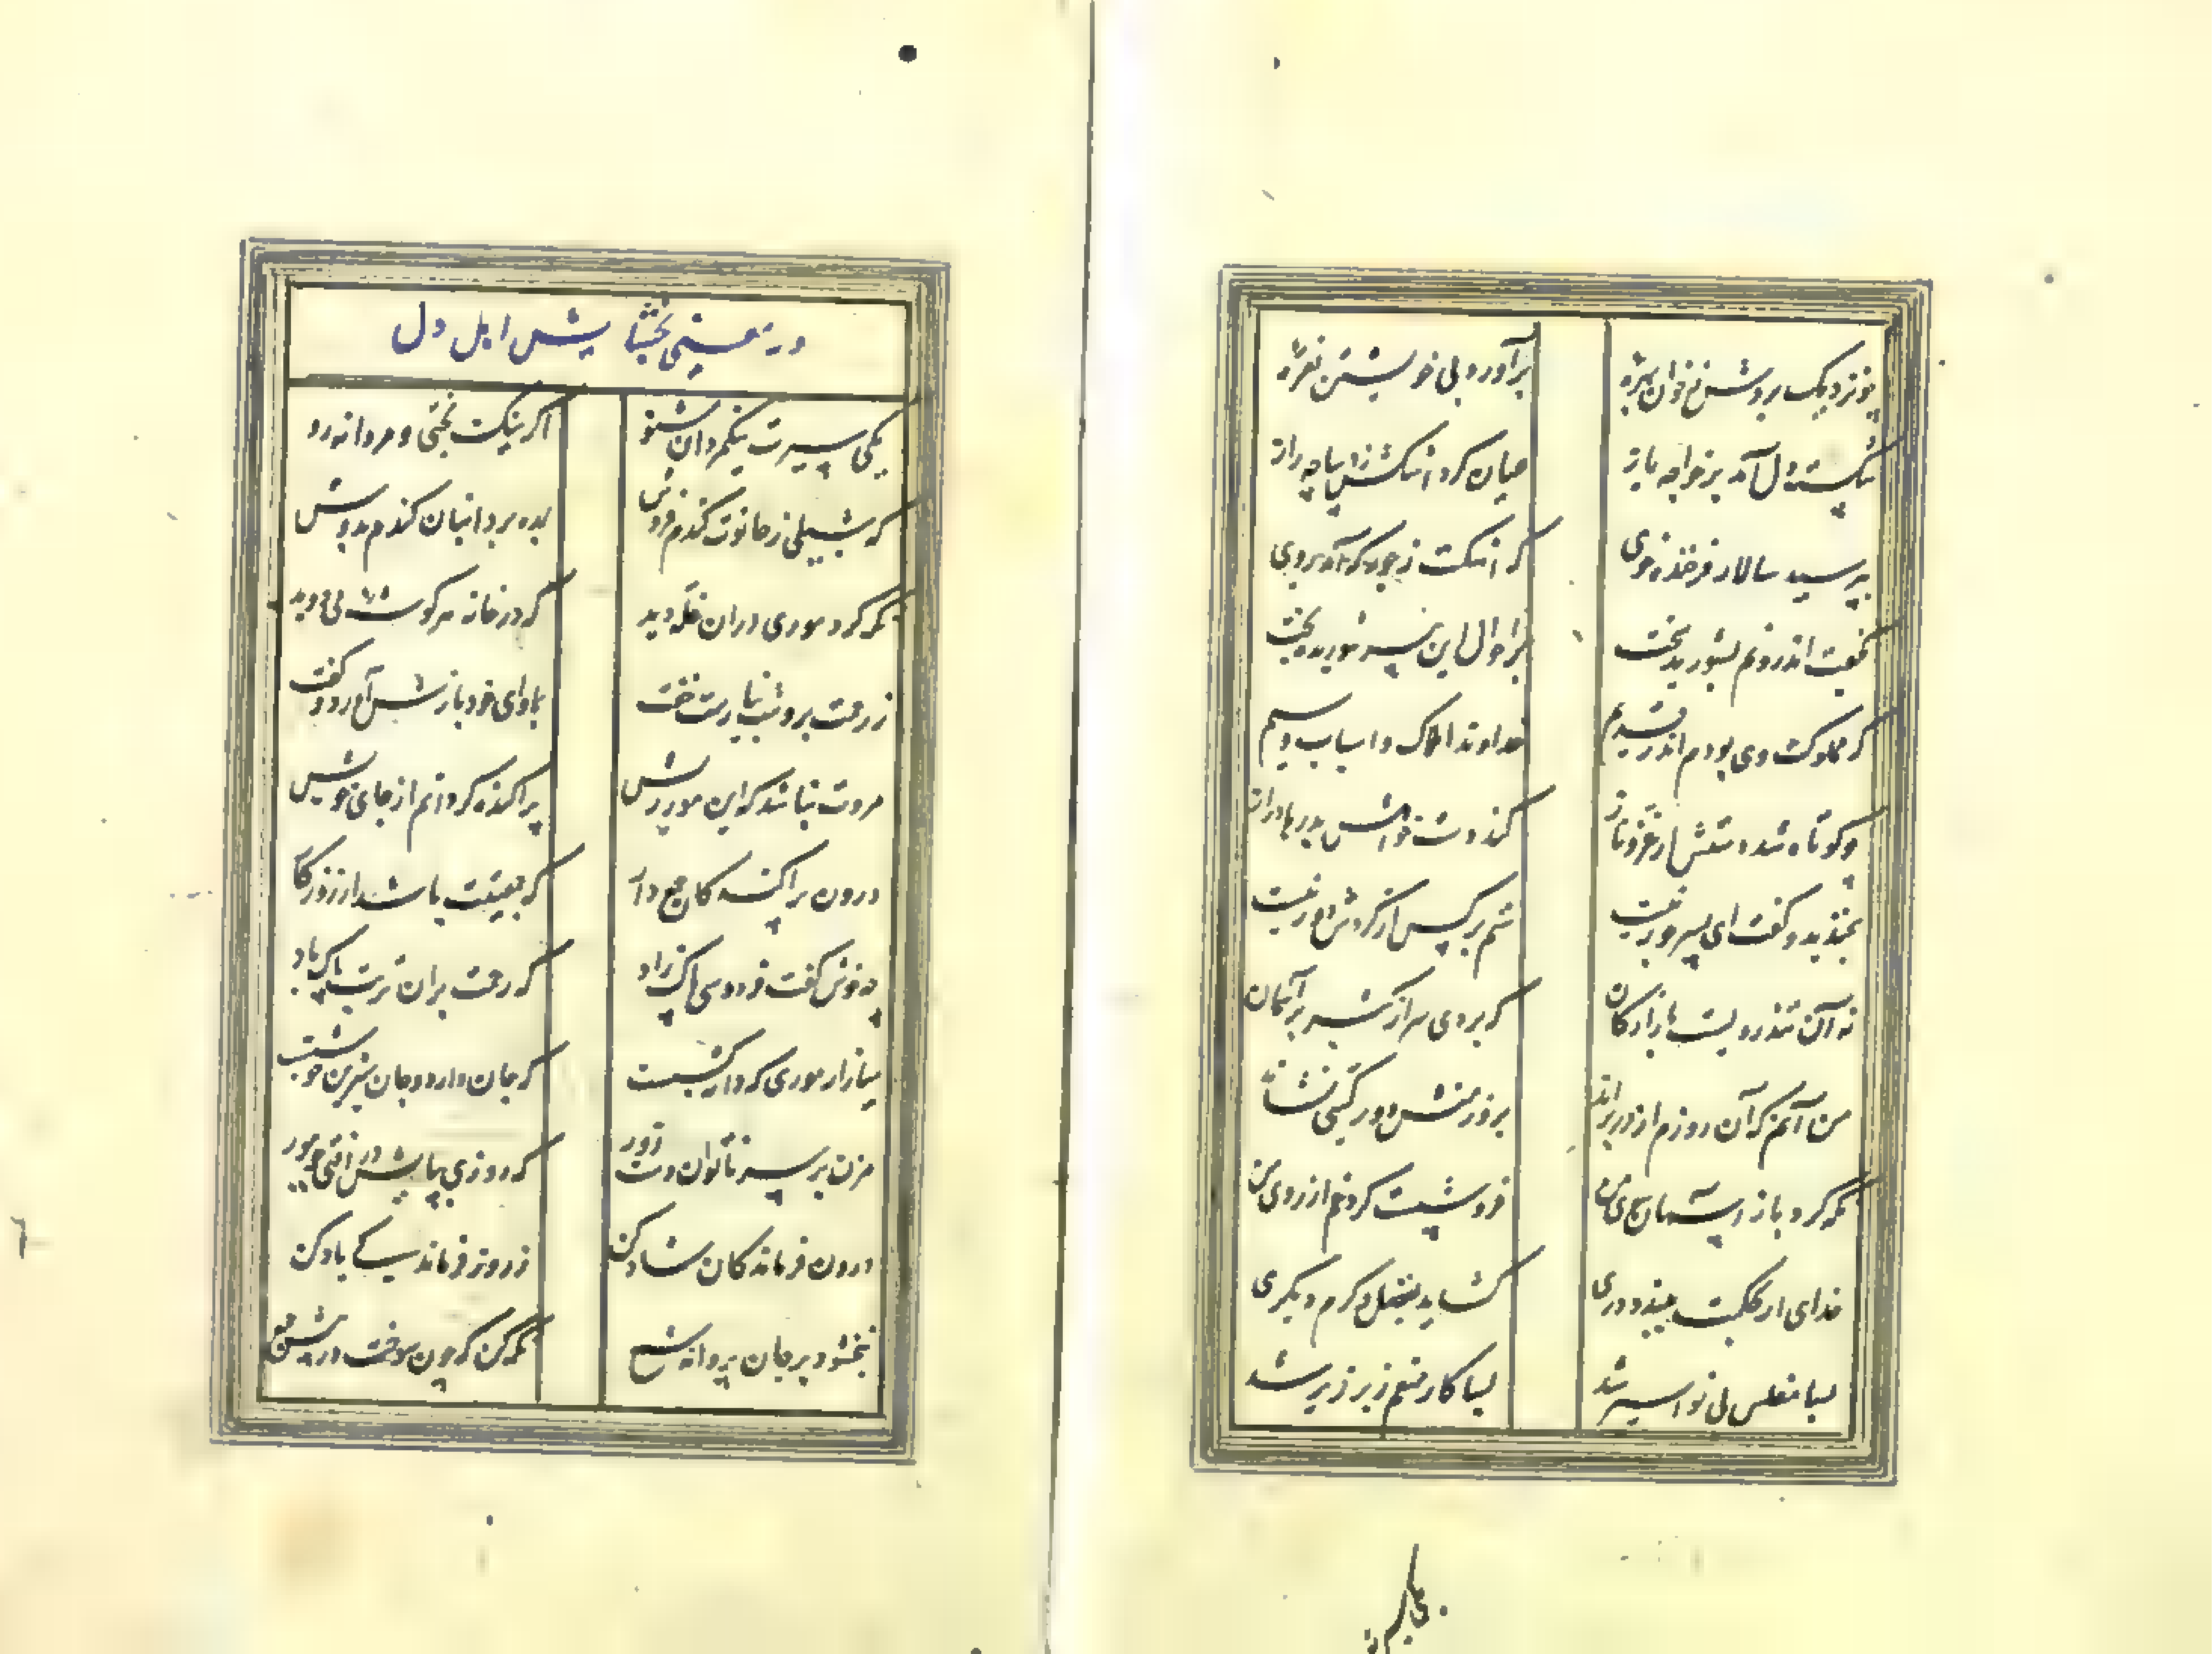 چو نزدیک بردش ز خوان بهره برآورد بی خویشتن نعره
شکسته دل آمد بر خواجه باز عیان کرد اشکش ز دیباچه راز
بپرسید سالار فرخنده خوی که اشکت ز جور که آمد بروی
بگفت اندرونم بشورید سخت بر احوال این پیر شوریده بخت
که مملوک وی بودم اندر قدیم خداوند املاک و اسباب و سیم
چو کوتاه شد دستش از عز و ناز کند دست خواهش بدرها دراز
بخندید و گفت ای پسر جور نیست ستم بر کس از گردش دور نیست
نه آن تندرویست بازارگان که بردی سر از کبر بر آسمان
من آنم که آن روزم از در براند بروز منش دور گیتی نشاند
نگه کرد باز آسمان سوی من فرو شست گرد غم از روی من
خدای ار بحکمت ببندد دری گشاید بفضل و کرم دیگری
بسا مفلس بی نوا سیر شد بسا کار منعم زبر زیر شد
یکی سیرت
در معنی بخشایش اهل دل
یکی سیرت نیکمردان شنو اگر نیک بختی و مردانه رو
که شبلی ز حانوت گندم فروش بده برد انبان گندم بدوش
نگه کرد موری در آن غله دید که در خانه هر گوشه می دوید
ز رحمت برو شب نیارست خفت بماوای خود بازش آورد و گفت
مروت نباشد که این مور ریش پراکنده گردانم از جای خویش
درون پراکندگان جمع دار که جمعیتت باشد از روزگار
چه خوش گفت فردوسی پاک زاد که رحمت بران تربت پاک باد
میازار موری که دانه کشست که جان دارد و جان شیرین خوشست
مزن بر سر ناتوان دست زور که روزی بپایش در افتی چو مور
درون فروماندگان شاد کن ز روز فروماندگی یاد کن
نبخشود بر جان پروانه شمع نگه کن که چون سوخت در پیش جمع